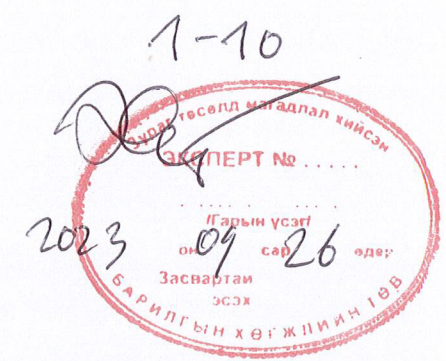 1-10
Зураг төсөлд магадлал хийсэн
ЭКСПЕРТ № .....
/Гарын үсэг/
2023 он 09 сар 26 өдөр
Засвартай
эсэх
БАРИЛГЫН ХӨГЖЛИЙН ТӨВ